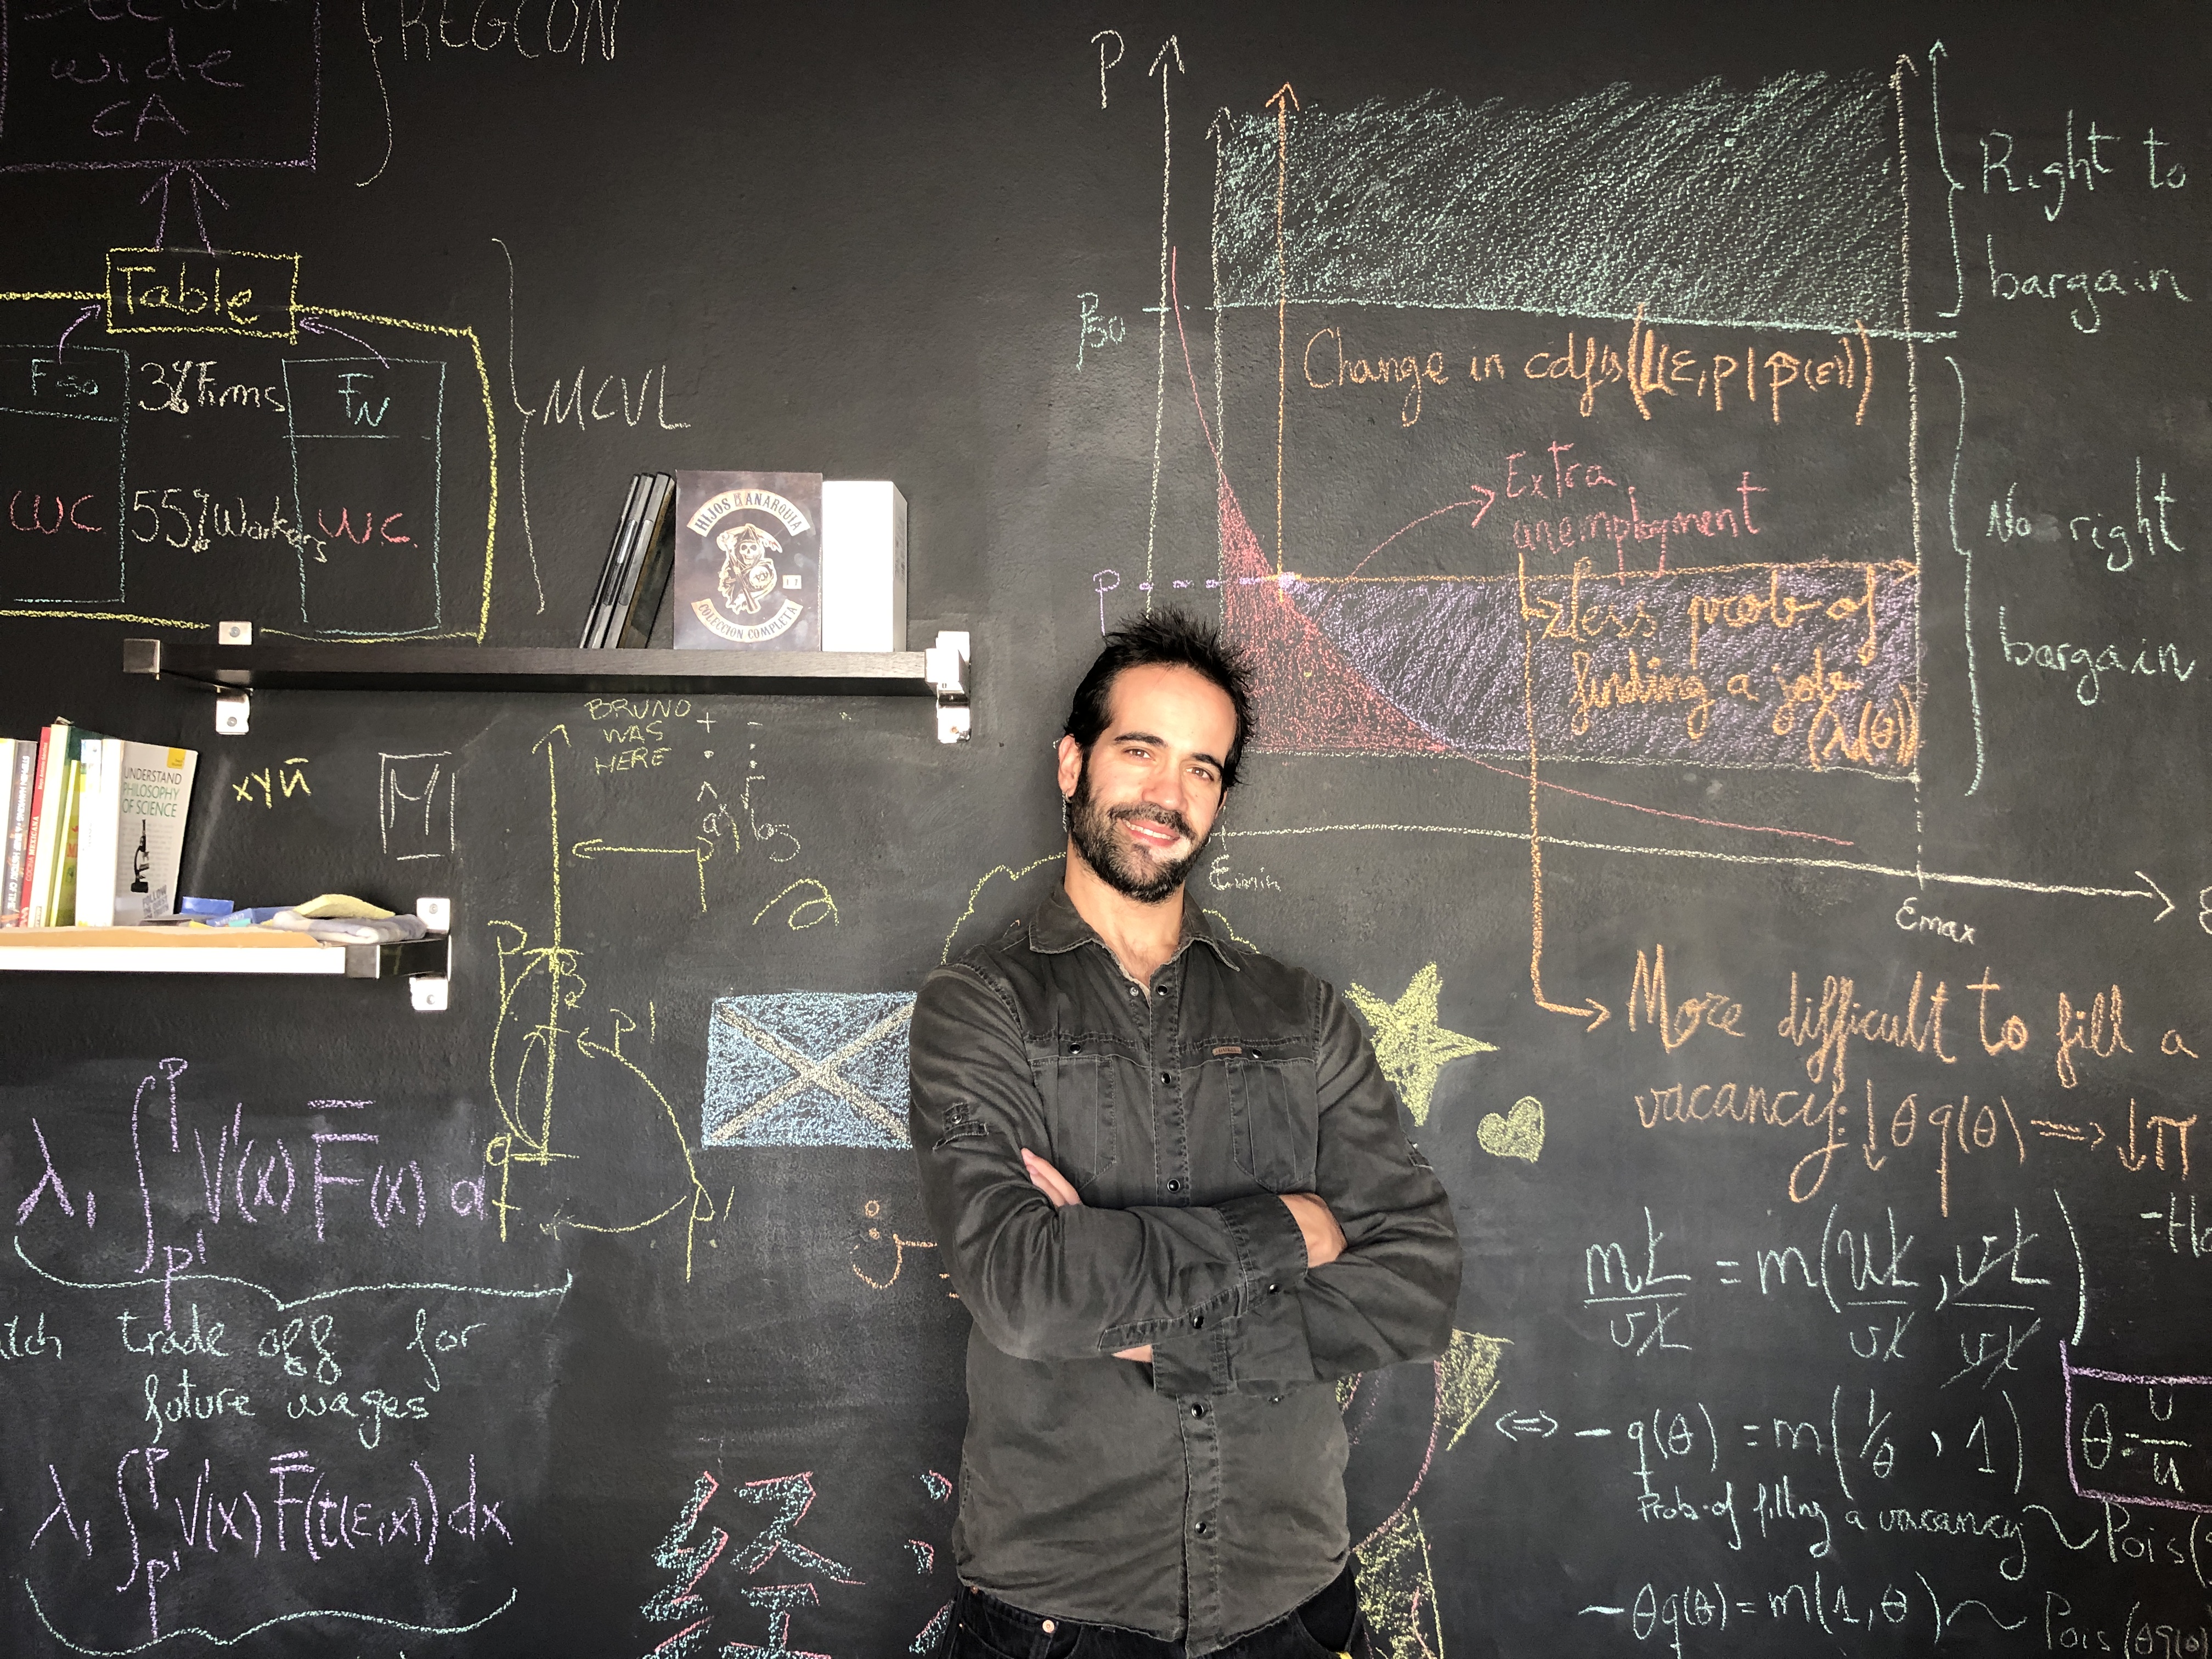 wide
CA
REGCON
Table
F50
3% Firms
FN
W.C.
55% Workers
W.C.
MCVL
HIJOS DE LA ANARQUIA
COLECCION COMPLETA
UNDERSTAND
PHILOSOPHY
OF SCIENCE
COCINA MEXICANA
хуй
M
BRUNO
WAS
HERE
+ -
log
P
P'
λ₁ ∫ V'(x) F̄(x) d
P
P'
trade off for
future wages
λ₁ ∫ V'(x) F̄(t(ε,x)) dx
P
P'
经
P
P50
Right to
bargain
Change in cdf's (L(ε,p|p̂(ε)))
Extra
unemployment
No right
bargain
P
less prob of
finding a job
(λ(θ))
εmin
εmax
ε
More difficult to fill a
vacancy: ↓θq(θ) => ↓π
mL/vL = m(uL/vL, vL/vL)
<=> - q(θ) = m(1/θ, 1)
θ = v/u
Prob. of filling a vacancy ~ Pois(
- θq(θ) = m(1, θ) ~ Pois(θq(θ)